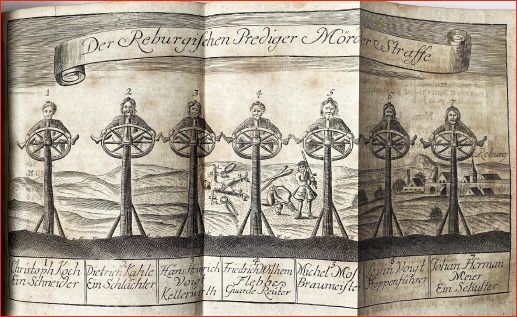 Der Reburgischen Prediger Mörder Straffe
1 2 3 4 5 6 7
Reburg
1 2 3 4 5 6 7
Christoph Koch
Ein Schneider
Dietrich Kahle
Ein Schlachter
Hans Henrich
Voigt
Kellerwirth
Friedrich Wilhem
Guarde Reuter
Michel
Braumeister
Voigt
Johan Herman
Meier
Ein Schuster